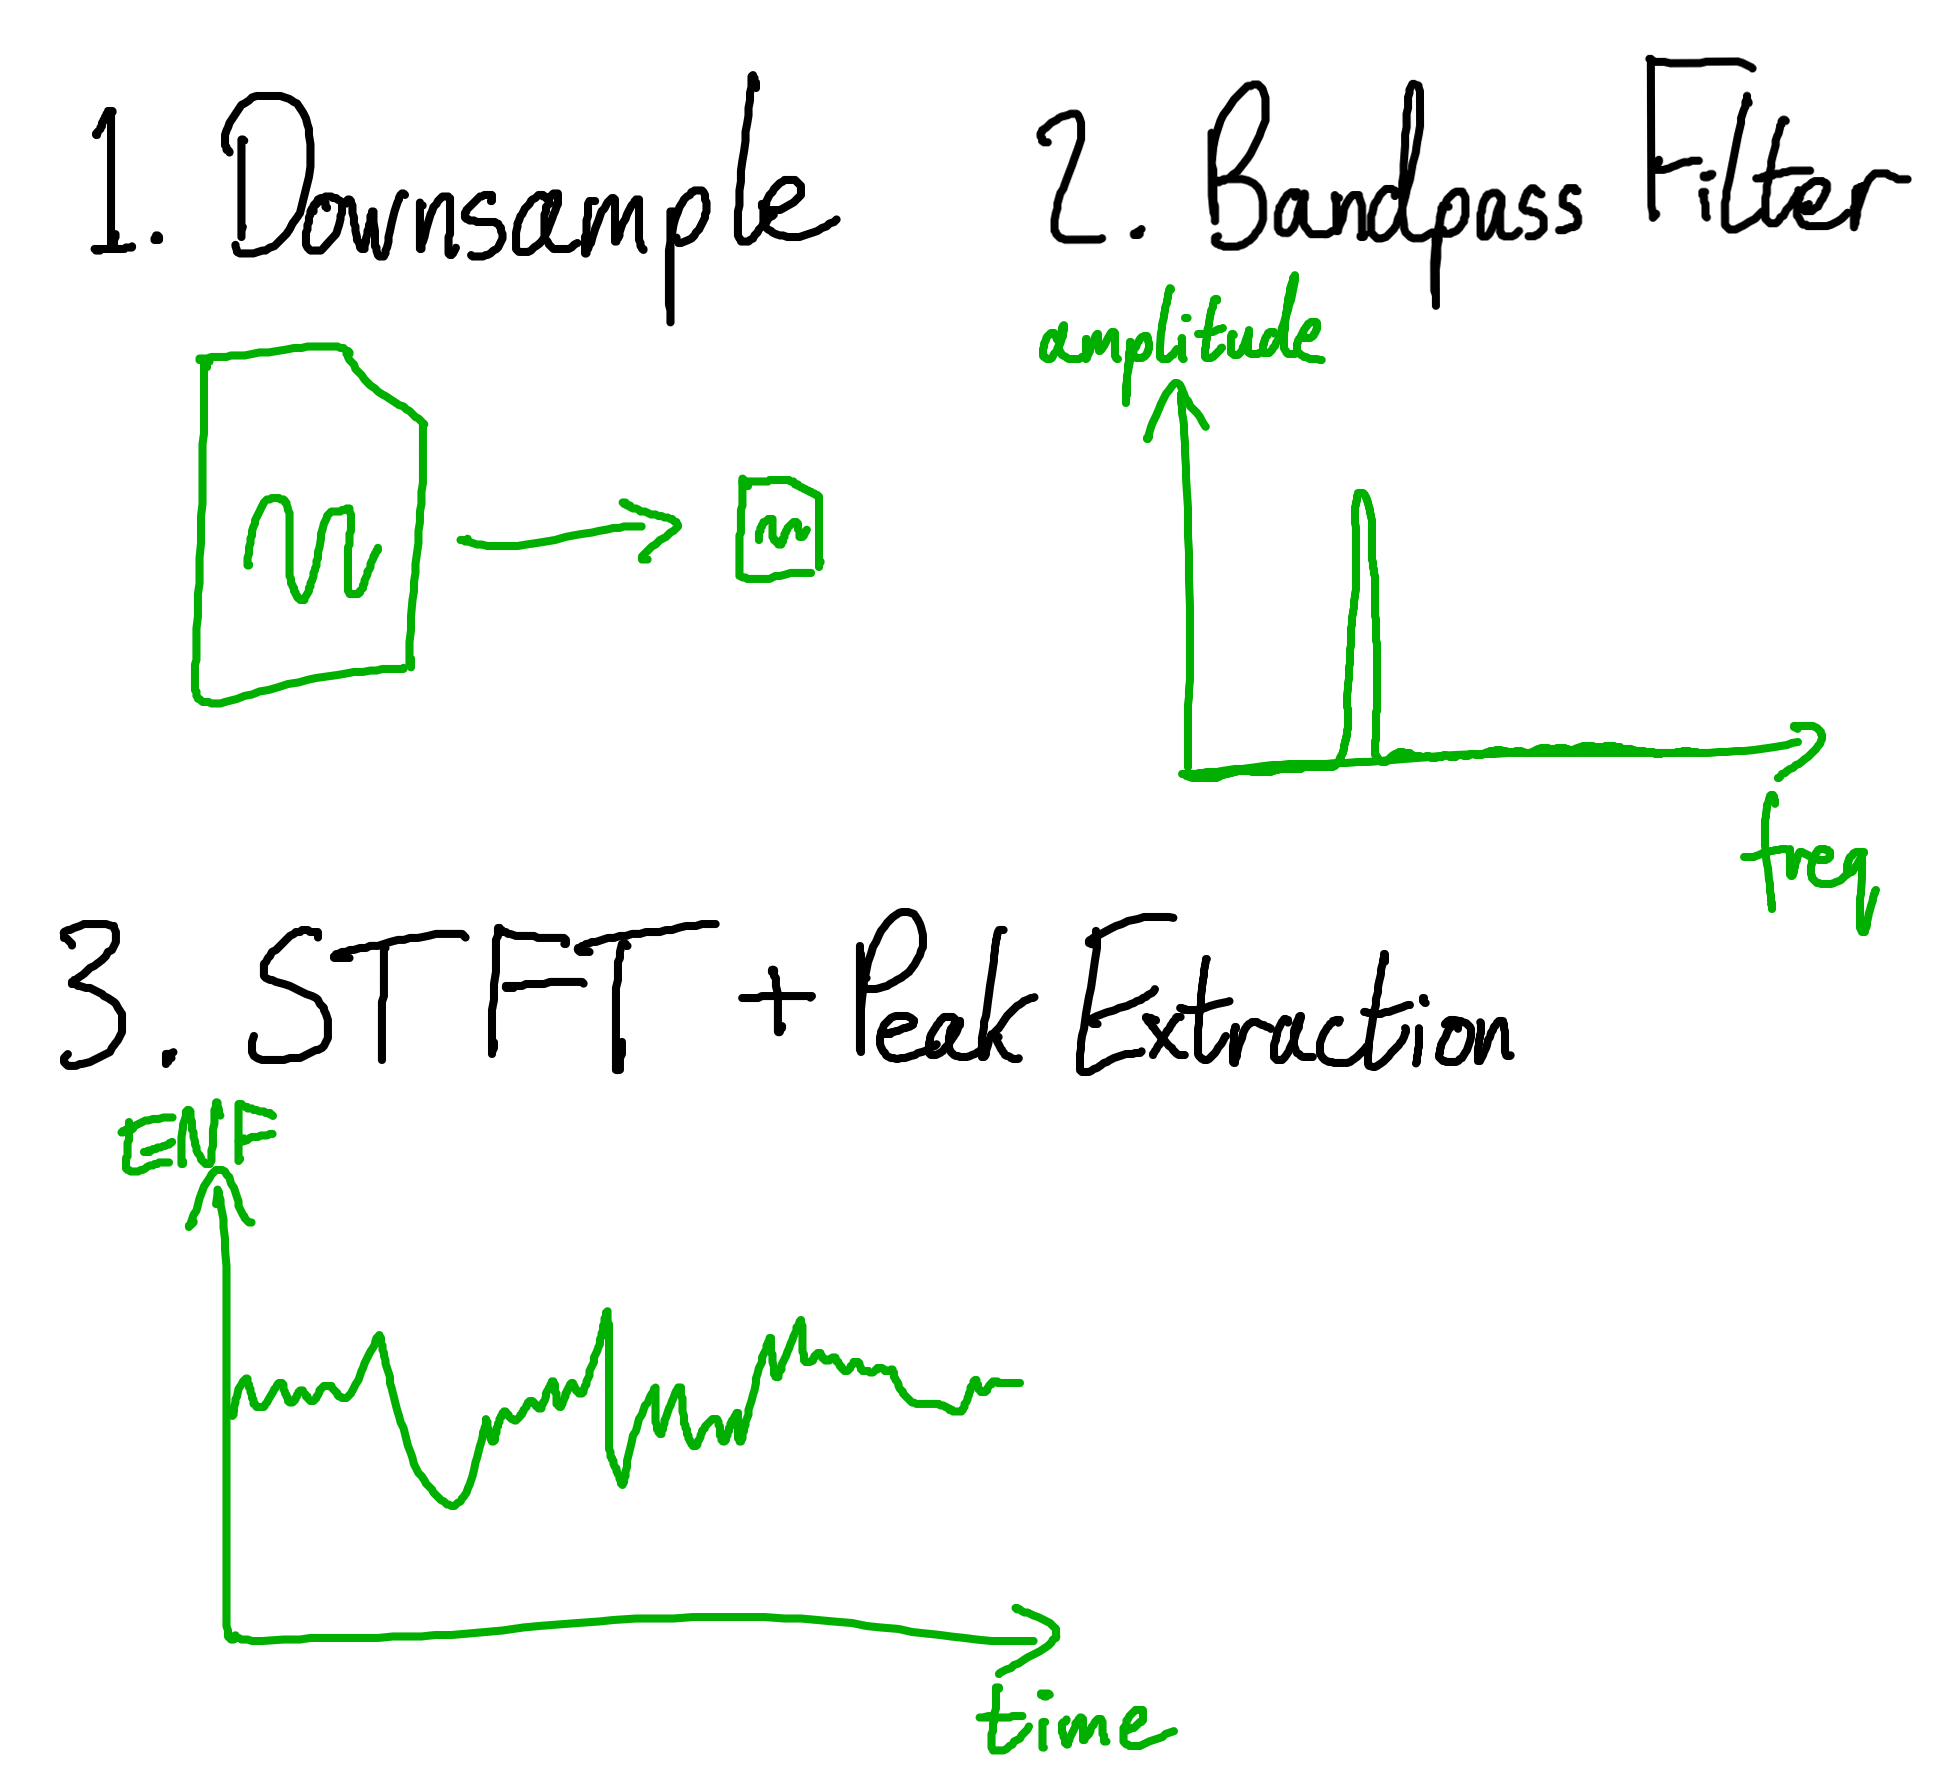 1. Downsample
2. Bandpass Filter
amplitude
freq
3. STFT + Peak Extraction
ENF
time